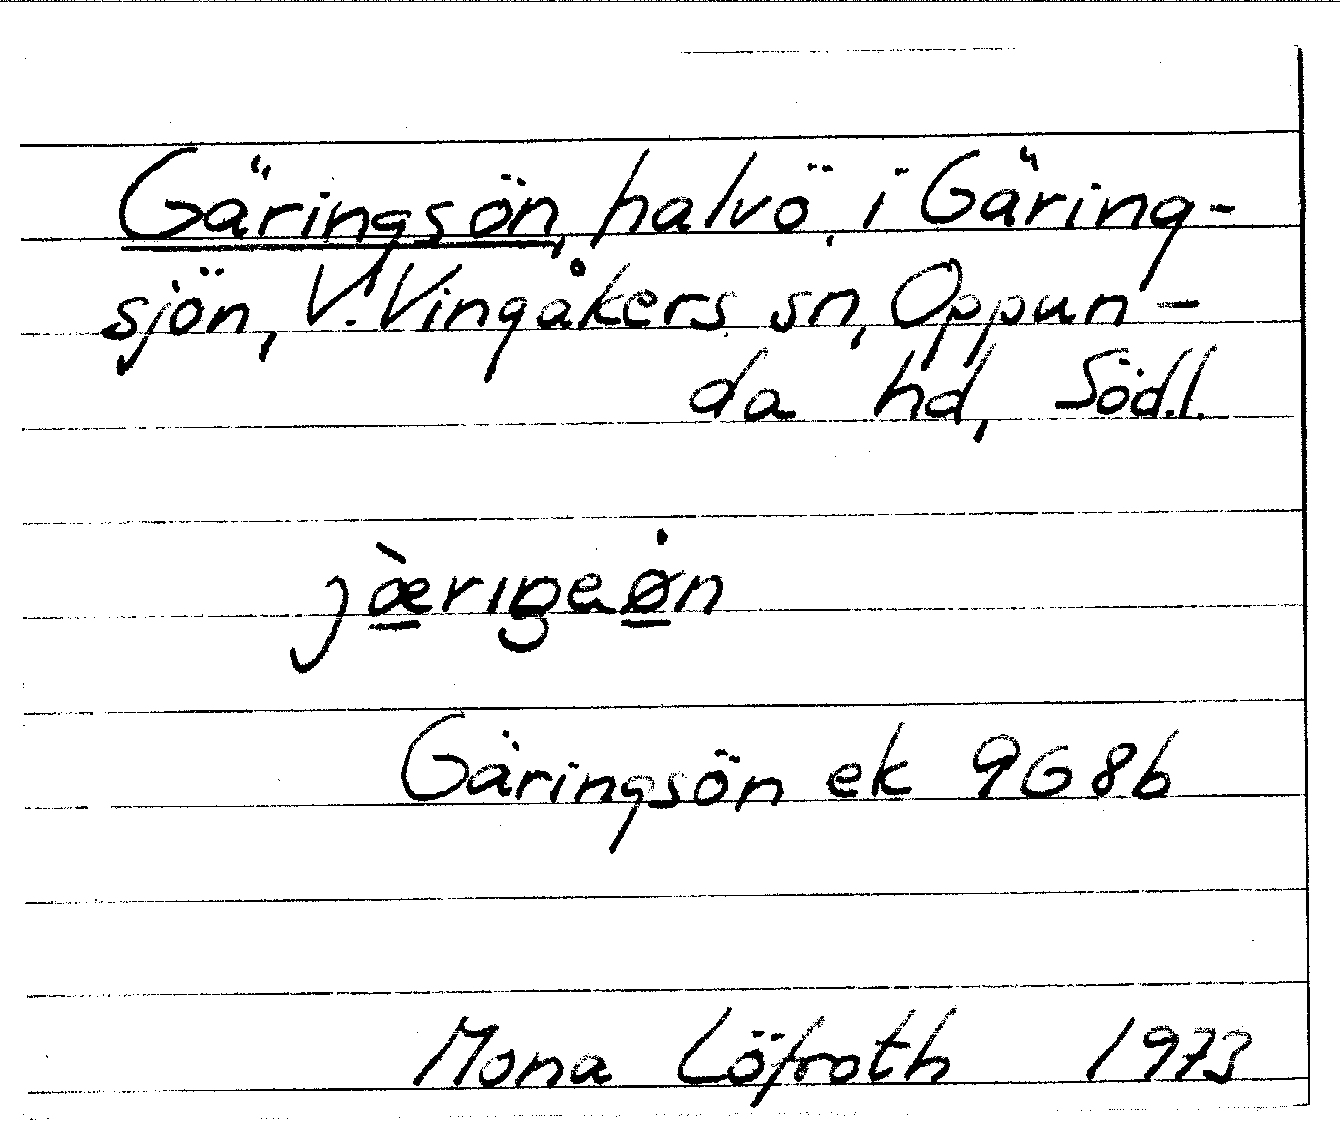 Gäringsön, halvö i Gäring-
sjön, V. Vingåkers sn, Oppun-
da hd, Söd.l.
Gäringsön ek 9G8b
Mona Löfroth 1973